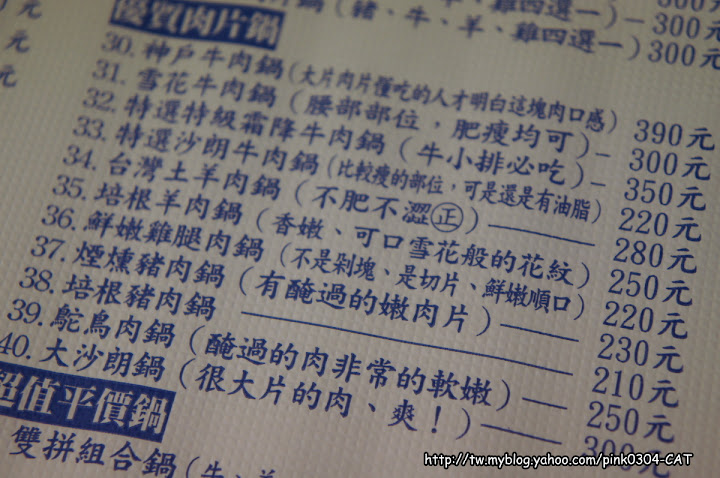 元
元
元
鍋(豬、牛、羊、雞四選一)－300元
優質肉片鍋
30. 神戶牛肉鍋(大片肉片懂吃的人才明白這塊肉口感) 390元
31. 雪花牛肉鍋(腰部部位,肥瘦均可)－300元
32. 特選特級霜降牛肉鍋(牛小排必吃)－350元
33. 特選沙朗牛肉鍋(比較瘦的部位,可是還是有油脂) 220元
34. 台灣土羊肉鍋(不肥不澀㊣)——280元
35. 培根羊肉鍋(香嫩、可口雪花般的花紋) 250元
36. 鮮嫩雞腿肉鍋(不是剁塊、是切片、鮮嫩順口) 220元
37. 煙燻豬肉鍋(有醃過的嫩肉片)——230元
38. 培根豬肉鍋——210元
39. 鴕鳥肉鍋(醃過的肉非常的軟嫩)——250元
40. 大沙朗鍋(很大片的肉、爽!)——300元
超值平價鍋
雙拼組合鍋(牛、羊
http://tw.myblog.yahoo.com/pink0304-CAT